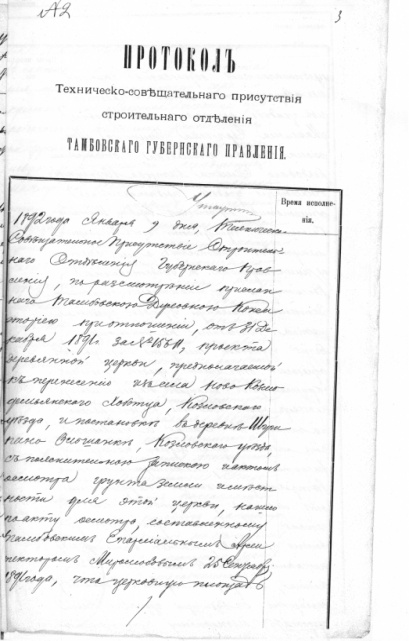 А2
3
ПРОТОКОЛЪ
Техническо-совѣщательнаго присутствія
строительнаго отдѣленія
ТАМБОВСКАГО ГУБЕРНСКАГО ПРАВЛЕНІЯ.
Время исполне-
нія.
1892 года Января 9 дня, Техническо-
Совѣщательное Присутствіе Строитель-
наго Отдѣленія Губернскаго Прав-
ленія, по разсмотрѣнію прислан-
наго Тамбовскою Духовною Конси-
торіею при отношеніи, отъ 31 Де-
кабря 1891 г. за № проекта
деревянной церкви, предполагаемой
къ перенесенію изъ села Ново
Козловскаго
уѣзда, и постановкѣ въ деревнѣ
Козловскаго уѣзда,
съ пояснительною запискою и актомъ
осмотра грунта земли и мѣст-
ности для этой церкви, нашло
по акту осмотра, составленному
Тамбовскимъ Епархіальнымъ Архи-
текторомъ 25 Сентября
1891 года, что церковную площадь